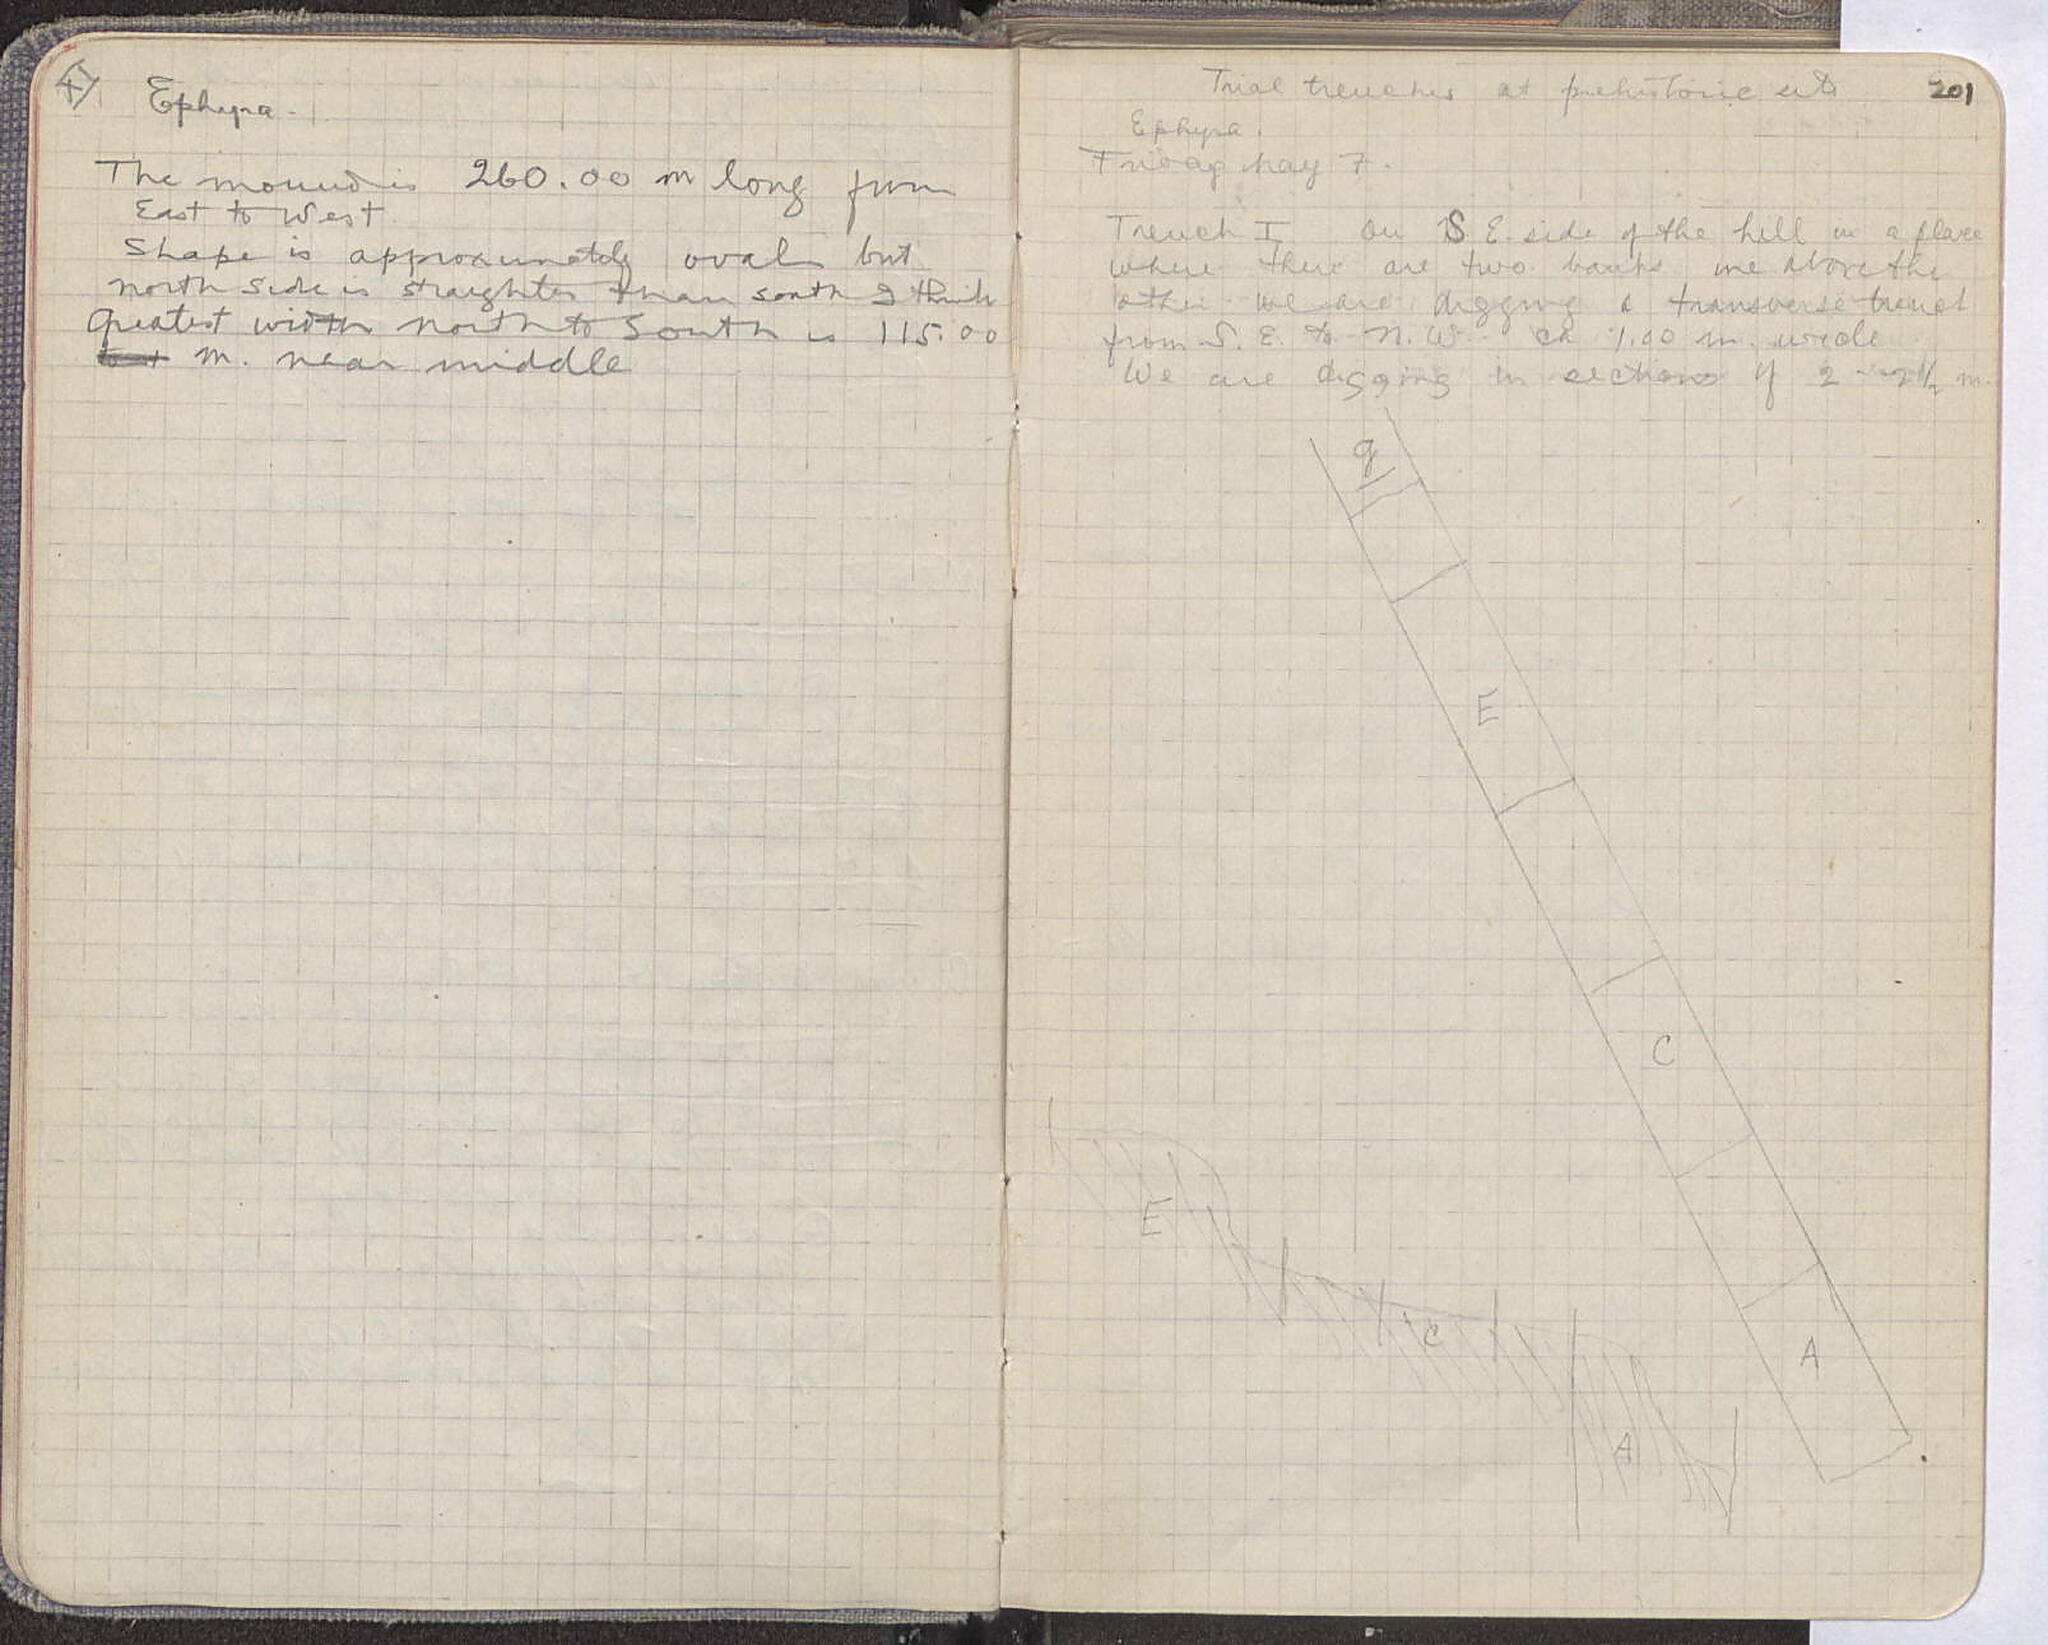 Ephyra.
The mound is 260.00 m long from
East to West
Shape is approximately oval but
north side is straighter than south I think
Greatest width north to south is 115.00
m. near middle
Trial trenches at prehistoric site
201
Ephyra.
Friday May 7.
Trench I On S E. side of the hill in a place
where there are two banks one above the
other we are digging a transverse trench
from S. E. to N. W. ca 1.00 m. wide
We are digging in sections of 2 - 2½ m.
g
E
C
A
E
C
A